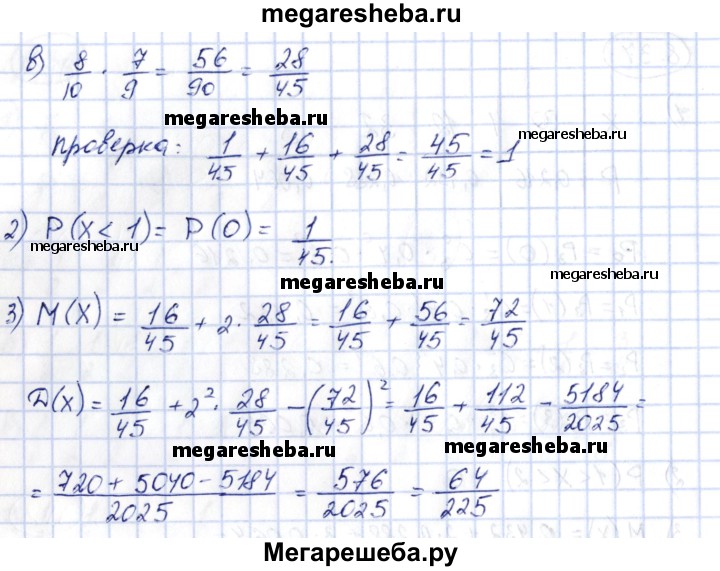 megaresheba.ru
в) 8/10 · 7/9 = 56/90 = 28/45
megaresheba.ru
проверка: 1/45 + 16/45 + 28/45 = 45/45 = 1
megaresheba.ru
2) P(X < 1) = P(0) = 1/45.
megaresheba.ru
megaresheba.ru
megaresheba.ru
3) M(X) = 16/45 + 2 · 28/45 = 16/45 + 56/45 = 72/45
D(x) = 16/45 + 2² · 28/45 − (72/45)² = 16/45 + 112/45 − 5184/2025 =
megaresheba.ru
megaresheba.ru
= (720 + 5040 − 5184)/2025 = 576/2025 = 64/225
Мегарешеба.ру